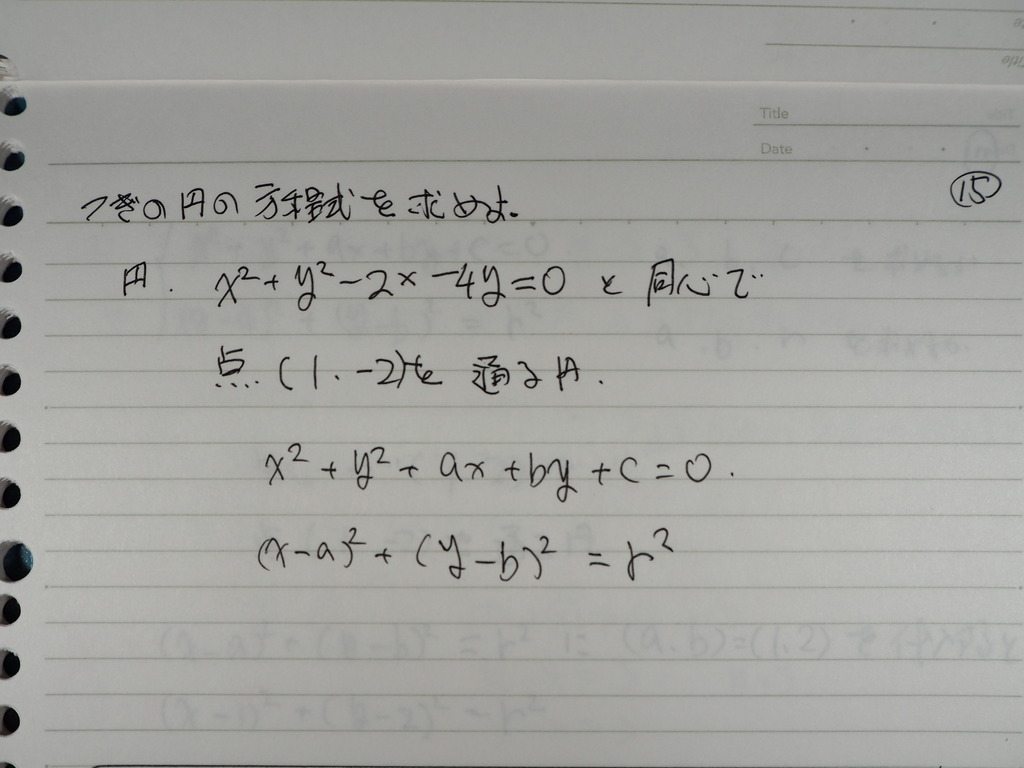 Title
Date
⑮
つぎの円の方程式を求めよ.
円. x²+y²-2x-4y=0 と同心で
点.(1.-2)を通る円.
x²+y²+ax+by+c=0.
(x-a)²+(y-b)²=r²